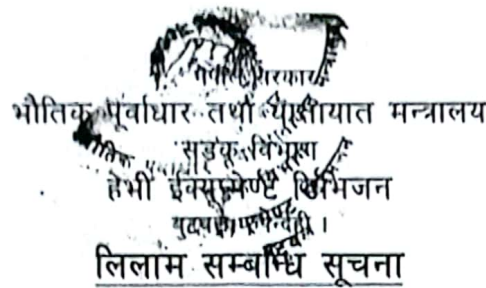 सरकार
भौतिक पूर्वाधार तथा यातायात मन्त्रालय
सडक विभाग
हेभी ईक्यूपमेण्ट डिभिजन
लिलाम सम्बन्धि सूचना